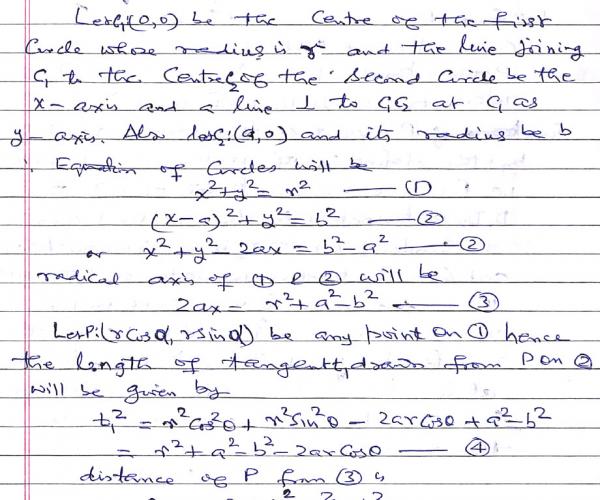 Let C₁(0,0) be the Centre of the first
Circle whose radius is r and the line joining
C₁ to the Centre C₂ of the Second Circle be the
x-axis and a line ⊥ to C₁C₂ at C₁ as
y-axis. Also let C₂:(a,0) and its radius be b
∴ Equation of Circles will be
x²+y²= r² —— ①
(x-a)²+y²= b² —— ②
or x²+y²-2ax = b²-a² —— ②
radical axis of ① & ② will be
2ax = r²+a²-b² —— ③
Let P:(rcosα, rsinα) be any point on ① hence
the length of tangent t₁ drawn from P on ②
will be given by
t₁² = r²Cos²θ + r²Sin²θ - 2arCosθ + a²-b²
= r²+a²-b²-2arCosθ —— ④
distance of P from ③ is